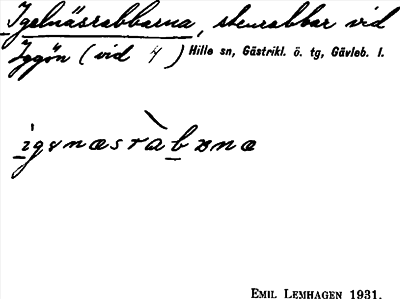 Igelnäsrabbarna, stenrabbar vid
Iggön (vid 4) Hille sn, Gästrikl. ö. tg, Gävleb. l.
EMIL LEMHAGEN 1931.